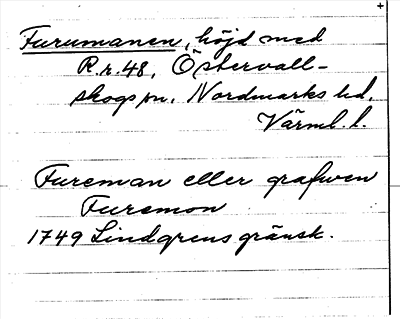 Furumanen, höjd med
R.r. 48, Östervall-
skogs sn, Nordmarks hd,
Värml. l.
Fureman eller grafwen
Furemon
1749 Lindgrens gränsk.